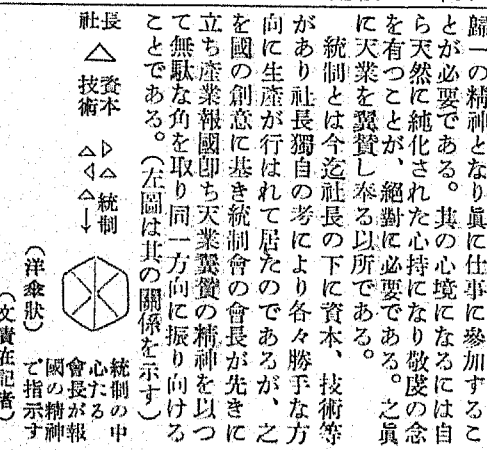 歸一の精神となり眞に仕事に參加するこ
とが必要である。其の心境になるには自
ら天然に純化された心持になり敬虔の念
を有つことが、絕對に必要である。之眞
に天業を翼贊し奉る以所である。
統制とは今迄社長の下に資本、技術等
があり社長獨自の考により各々勝手な方
向に生產が行はれて居たのであるが、之
を國の創意に基き統制會の會長が先きに
立ち產業報國卽ち天業翼贊の精神を以つ
て無駄な角を取り同一方向に振り向ける
ことである。(左圖は其の關係を示す)
社長
資本
技術
統制
統制の中
心たる
會長が報
國の精神
で指示す
(洋傘狀)
(文責在記者)